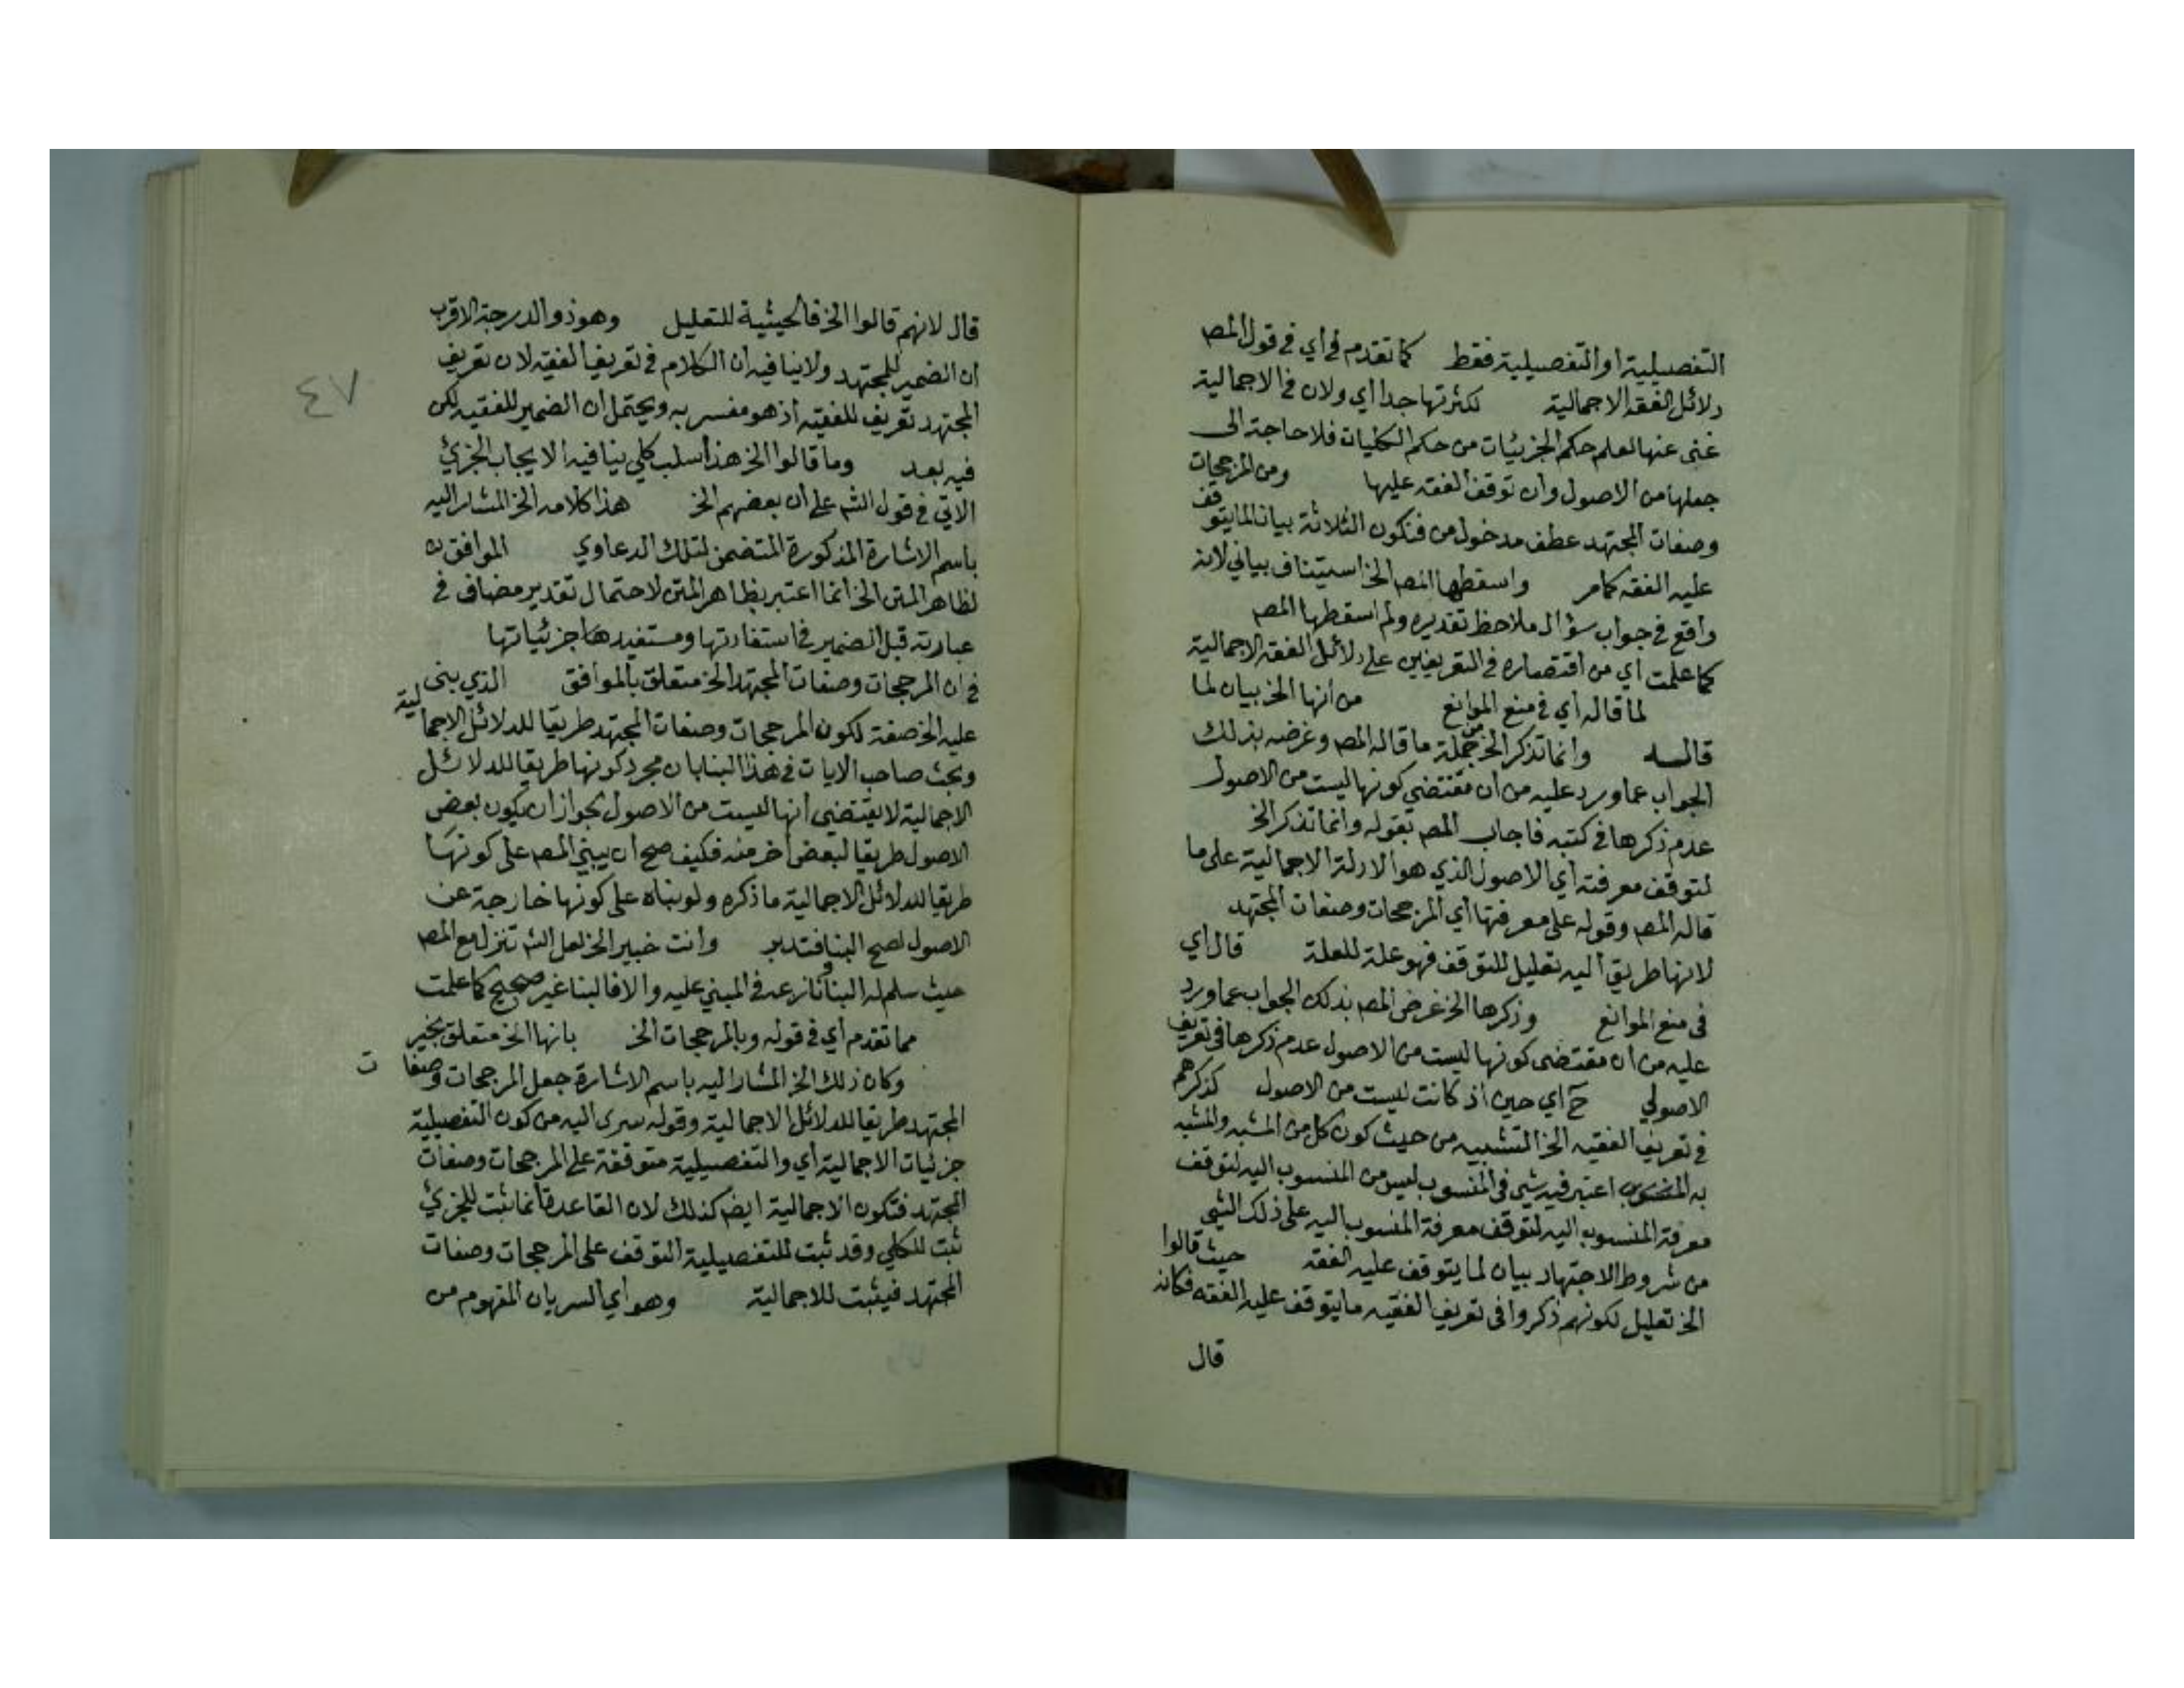 التفصيلية او التفصيلية فقط كما تقدم في أي في قول المص
دلائل الفقه الاجمالية لكثرتها جدا أي ولان في الاجمالية
غنى عنها لعلم حكم الجزئيات من حكم الكليات فلا حاجة الى
جعلها من الاصول وان توقف الفقه عليها ومن المرجحات
وصفات المجتهد عطف مدخول من فتكون الثلاثة بيانا لما يتوقف
عليه الفقه كما مر واسقطها المص الخ استيناف بياني لانه
واقع في جواب سؤال ملاحظ تقديره ولم اسقطها المص
كما علمت أي من اقتصاره في التعريفين على دلائل الفقه الاجمالية
لما قاله أي في منع الموانع من انها الخ بيان لما
قاله وانما تذكر الخ من جملة ما قاله المص وغرضه بذلك
الجواب عما ورد عليه من ان مقتضي كونها ليست من الاصول
عدم ذكرها في كتبه فاجاب المص بقوله وانما تذكر الخ
لتوقف معرفته أي الاصول الذي هو الادلة الاجمالية على ما
قاله المص وقوله على معرفتها أي المرجحات وصفات المجتهد
لانها طريق اليه تعليل للتوقف فهو علة للعلة قال أي
في منع الموانع وذكرها الخ غرض المص بذلك الجواب عما ورد
عليه من ان مقتضى كونها ليست من الاصول عدم ذكرها في تعريف
الاصولي ح أي حين اذ كانت ليست من الاصول كذكرهم
في تعريف الفقيه الخ التشبيه من حيث كون كل من المشبه والمشبه
به اعتبر فيه شي في المنسوب ليس من المنسوب اليه لتوقف
معرفة المنسوب اليه لتوقف معرفة المنسوب اليه على ذلك الشي
من شروط الاجتهاد بيان لما يتوقف عليه الفقه حيث قالوا
الخ تعليل لكونهم ذكروا في تعريف الفقيه ما يتوقف عليه الفقه فكانه
قال
٤٧
قال لانهم قالوا الخ فالحيثية للتعليل وهو ذو الدرجة الاقرب
ان الضمير للمجتهد ولا ينافيه ان الكلام في تعريف الفقيه لان تعريف
المجتهد تعريف للفقيه اذ هو مفسر به ويحتمل ان الضمير للفقيه لكن
فيه بعد وما قالوا الخ هذا سلب كلي ينافيه الايجاب الجزئي
الاتي في قول الش على ان بعضهم الخ هذا كلامه الخ المشار اليه
باسم الاشارة المذكورة المتضمن لتلك الدعاوي الموافق
لظاهر المتن الخ انما اعتبر بظاهر المتن لاحتمال تقدير مضاف في
عبارته قبل الضمير في استفادتها ومستفيدها جزئياتها
في ان المرجحات وصفات المجتهد الخ متعلق بالموافق الذي بنى
عليه الخ صفة لكون المرجحات وصفات المجتهد طريقا للدلائل الاجمالية
وبحث صاحب الايات في هذا البنا بان مجرد كونها طريقا للدلائل
الاجمالية لا يقتضي انها ليست من الاصول لجواز ان يكون بعض
الاصول طريقا لبعض اخر منه فكيف صح ان يبني المص على كونها
طريقا للدلائل الاجمالية ما ذكره ولو بناه على كونها خارجة عن
الاصول لصح البنا فتدبر وانت خبير الخ لعل الش تنزل مع المص
حيث سلم له البنا ونازعه في المبني عليه والا فالبنا غير صحيح كما علمت
مما تقدم أي في قوله وبالمرجحات الخ بانها الخ متعلق بخبير
وكان ذلك الخ المشار اليه باسم الاشارة جعل المرجحات وصفات
المجتهد طريقا للدلائل الاجمالية وقوله سرى اليه من كون التفصيلية
جزئيات الاجمالية أي والتفصيلية متوقفة على المرجحات وصفات
المجتهد فتكون الاجمالية ايض كذلك لان القاعدة انما ثبت للجزئي
ثبت للكلي وقد ثبت للتفصيلية التوقف على المرجحات وصفات
المجتهد فيثبت للاجمالية وهو أي السريان المفهوم من